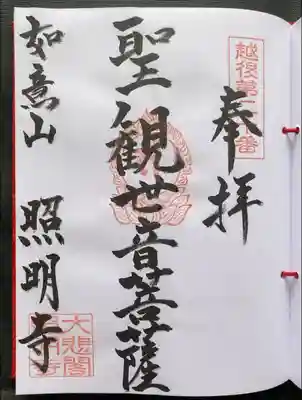 越後第二十番
奉拝
聖観世音菩薩
如意山 照明寺
大悲閣